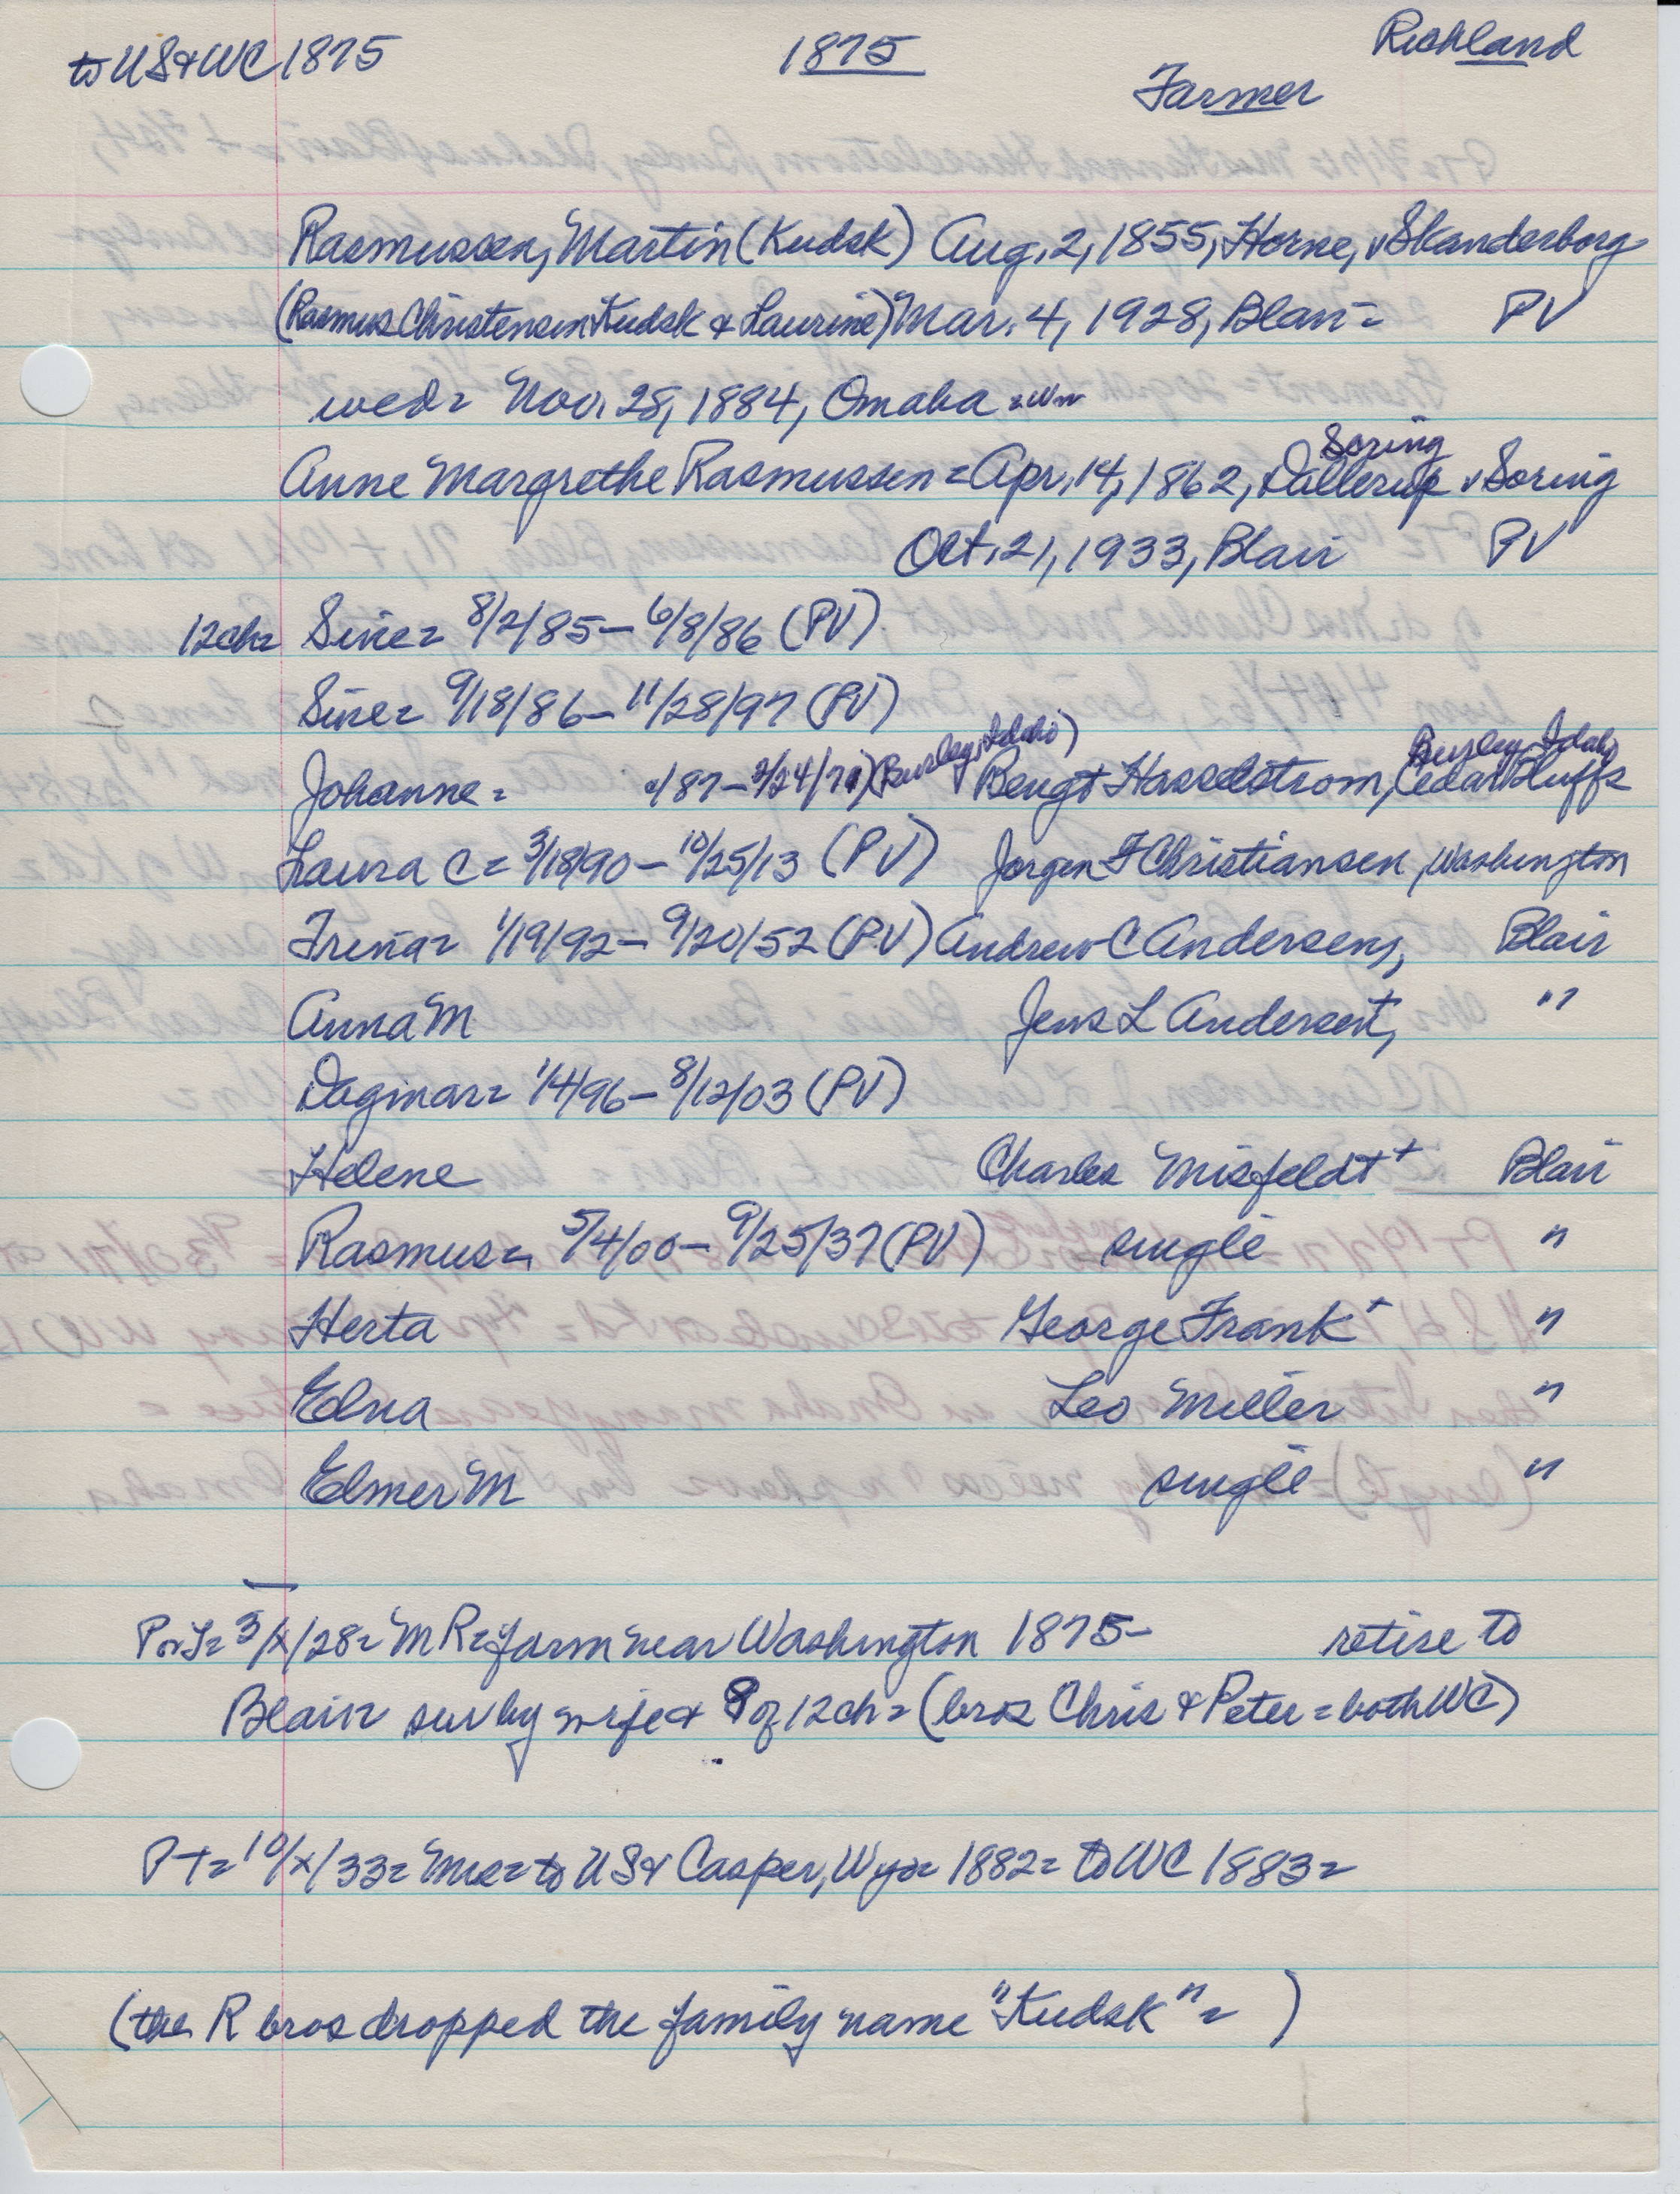 to US & WC 1875 1875 Richland
Farmer
Rasmussen, Martin (Kudsk) Aug. 2, 1855, Horne, v Skanderborg
(Rasmus Christensen Kudsk & Laurine) Mar. 4, 1928, Blair = PV
wed = Nov. 28, 1884, Omaha =
Soring
Anne Margrethe Rasmussen = Apr. 14, 1862, Dallerup v Soring
Oct. 21, 1933, Blair PV
12 ch = Sine = 8/2/85 – 6/8/86 (PV)
Sine = 9/18/86 – 11/28/97 (PV)
(Burley, Idaho) Burley, Idaho
Johanne = /87 – 2/24/71) Bengt Hasselstrom, Cedar Bluffs
Laura C = 3/18/90 – 10/25/13 (PV) Jorgen F Christiansen, Washington
Trena = 1/19/92 – 9/20/52 (PV) Andrew C Andersen, Blair
Anna M Jens L Andersen, "
Dagmar = 1/4/96 – 8/12/03 (PV)
Helene Charles Misfeldt + Blair
Rasmus = 5/4/00 – 9/25/37 (PV) single "
Herta George Frank + "
Edna Leo Miller "
Elmer M single "
P or T = 3/x/28 = MR = farm near Washington 1875 – retire to
Blair = sur by wife & 8 of 12 ch = (bros Chris & Peter = both WC)
PT = 10/x/33 = Mrs = to US & Casper, Wyo = 1882 = to WC 1883 =
(the R bros dropped the family name "Kudsk" = )